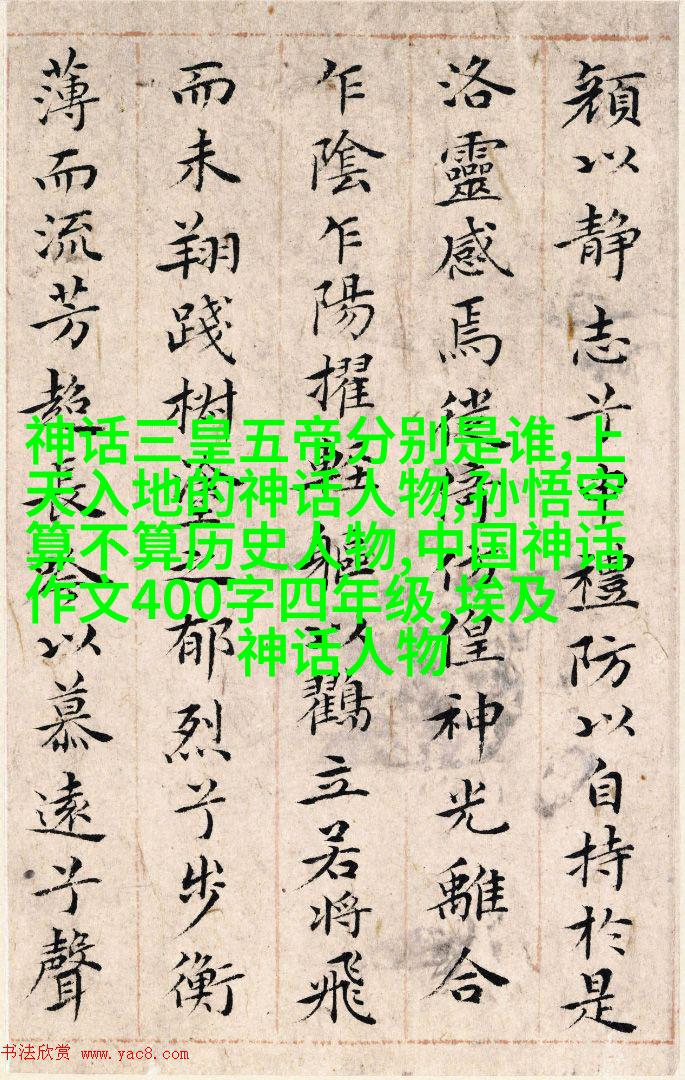 顔以静志兮申禮防以自持於是
洛靈感焉徙倚彷偟神光離合
乍陰乍陽擢輕軀以鸖立若將飛
而未翔踐椒塗之郁烈兮步衡
薄而流芳超長吟以慕遠兮聲
神话三皇五帝分别是谁,上
天入地的神话人物,孙悟空
算不算历史人物,中国神话
作文400字四年级,埃及
神话人物
书法欣赏 www.yac8.com